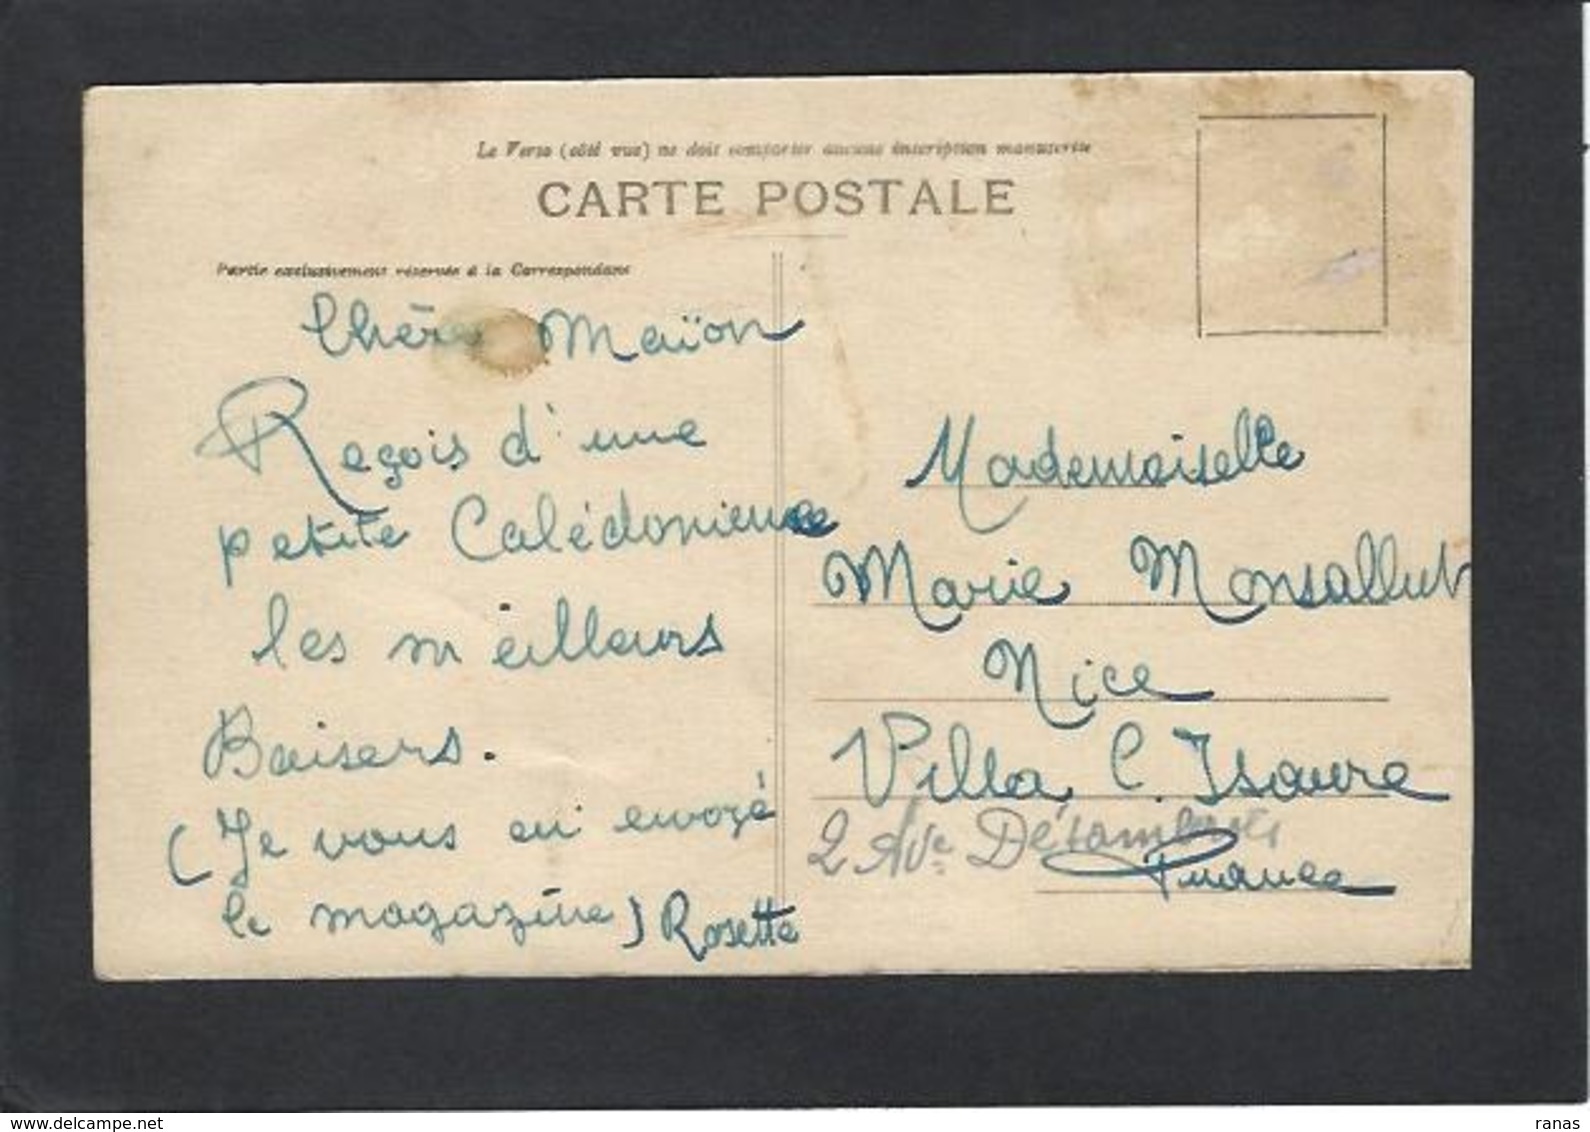 Le Verso (côté vue) ne doit comporter aucune inscription manuscrite
CARTE POSTALE
Partie exclusivement réservée à la Correspondance
Chère Maïon
Reçois d'une
petite Calédonienne
les meilleurs
Baisers.
(Je vous en envoyé
le magazine) Rosette
Mademoiselle
Marie Monsallut
Nice
Villa C. Isaure
2 Ave Désambrois
France
delcampe.net
ranas